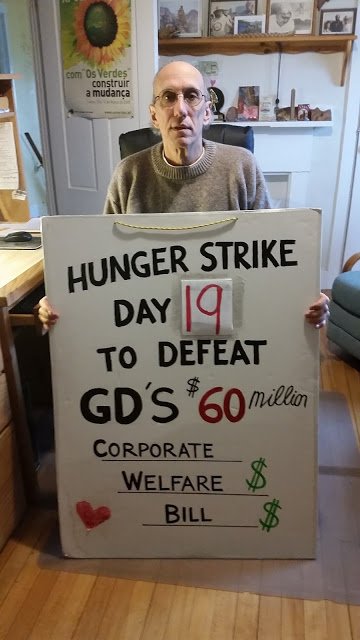 com "Os Verdes"
construir
a mudança
HUNGER STRIKE
DAY 19
TO DEFEAT
GD'S $60 million
CORPORATE
WELFARE $
BILL $